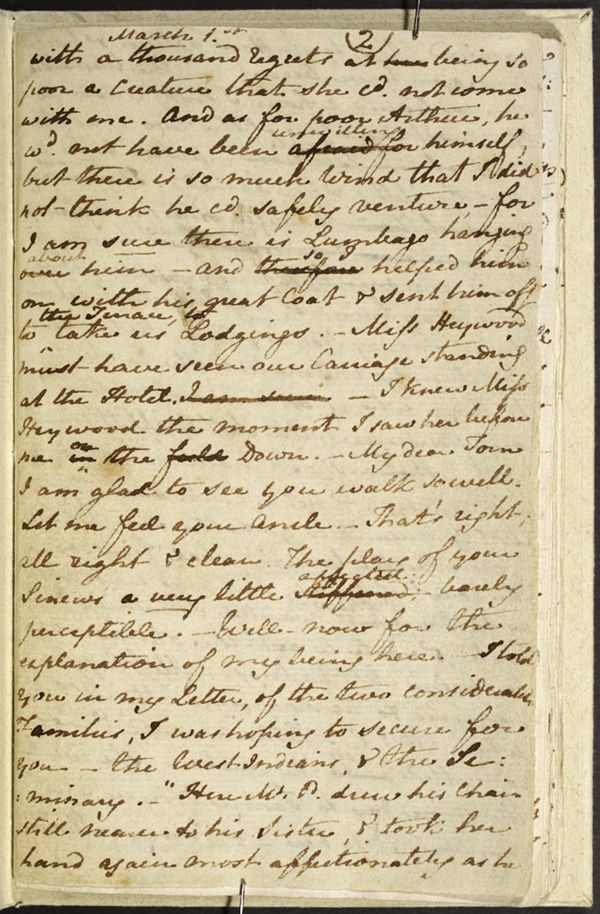 March 1.st (2)
with a thousand regrets at her being so
poor a Creature that she cd. not come
with me. And as for poor Arthur, he
wd. not have been afraid unwilling for himself,
but there is so much Wind that I did
not think he cd. safely venture, – for
I am sure there is Lumbago hanging
over about him – and therefore so I helped him
on with his great Coat & sent him off
to the Terrace, to take us Lodgings. – Miss Heywood
must have seen our Carriage standing
at the Hotel. I am sure – I knew Miss
Heywood the moment I saw her before
me in on the field Down. – My dear Tom
I am glad to see you walk so well.
Let me feel your Ancle. – That's right;
all right & clean. The play of your
Sinews a very little stiffened affected: – barely
perceptible. – Well – now for the
explanation of my being here. – I told
you in my Letter, of the two considerable
Families, I was hoping to secure for
you – the West Indians, & the Se:
:minary. –" Here Mr. P. drew his Chair
still nearer to his Sister, & took her
hand again most affectionately as he